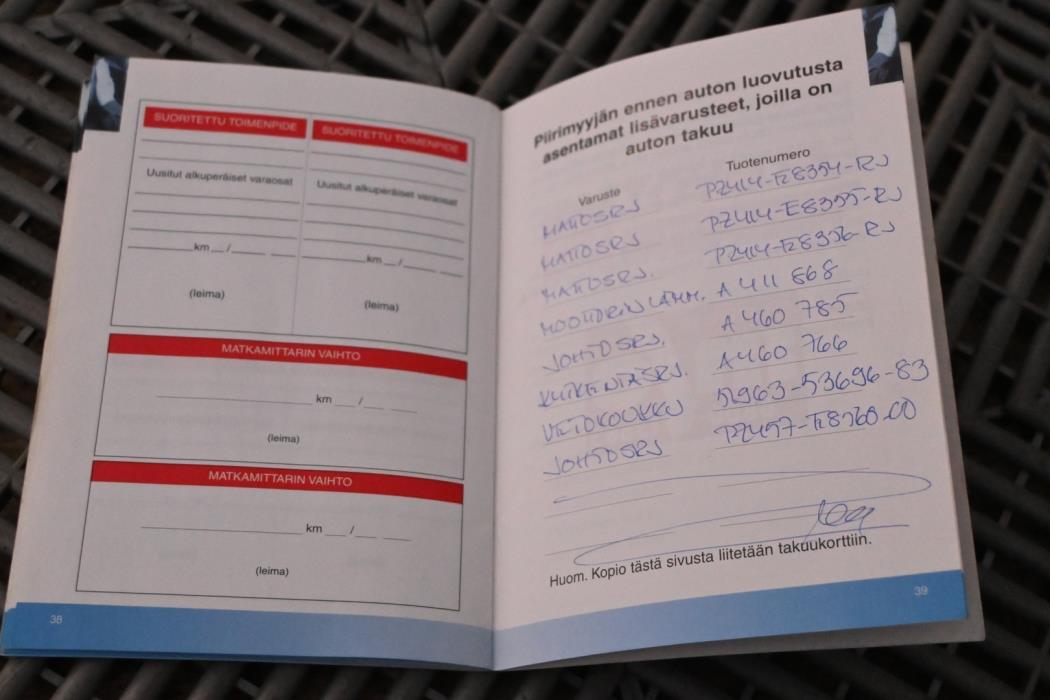 SUORITETTU TOIMENPIDE
Uusitut alkuperäiset varaosat
km /
(leima)
SUORITETTU TOIMENPIDE
Uusitut alkuperäiset varaosat
km /
(leima)
MATKAMITTARIN VAIHTO
km /
(leima)
MATKAMITTARIN VAIHTO
km /
(leima)
38
Piirimyyjän ennen auton luovutusta
asentamat lisävarusteet, joilla on
auton takuu
Varuste Tuotenumero
MATTOSRJ PZ414-E8354-RJ
MATTOSRJ PZ414-E8355-RJ
MATTOSRJ. PZ414-E8356-RJ
MOOTTORINLÄMM. A 411 868
JOHTOSRJ. A 460 785
A 460 766
VETOKOUKKU
JOHTOSRJ
Huom. Kopio tästä sivusta liitetään takuukorttiin.
39